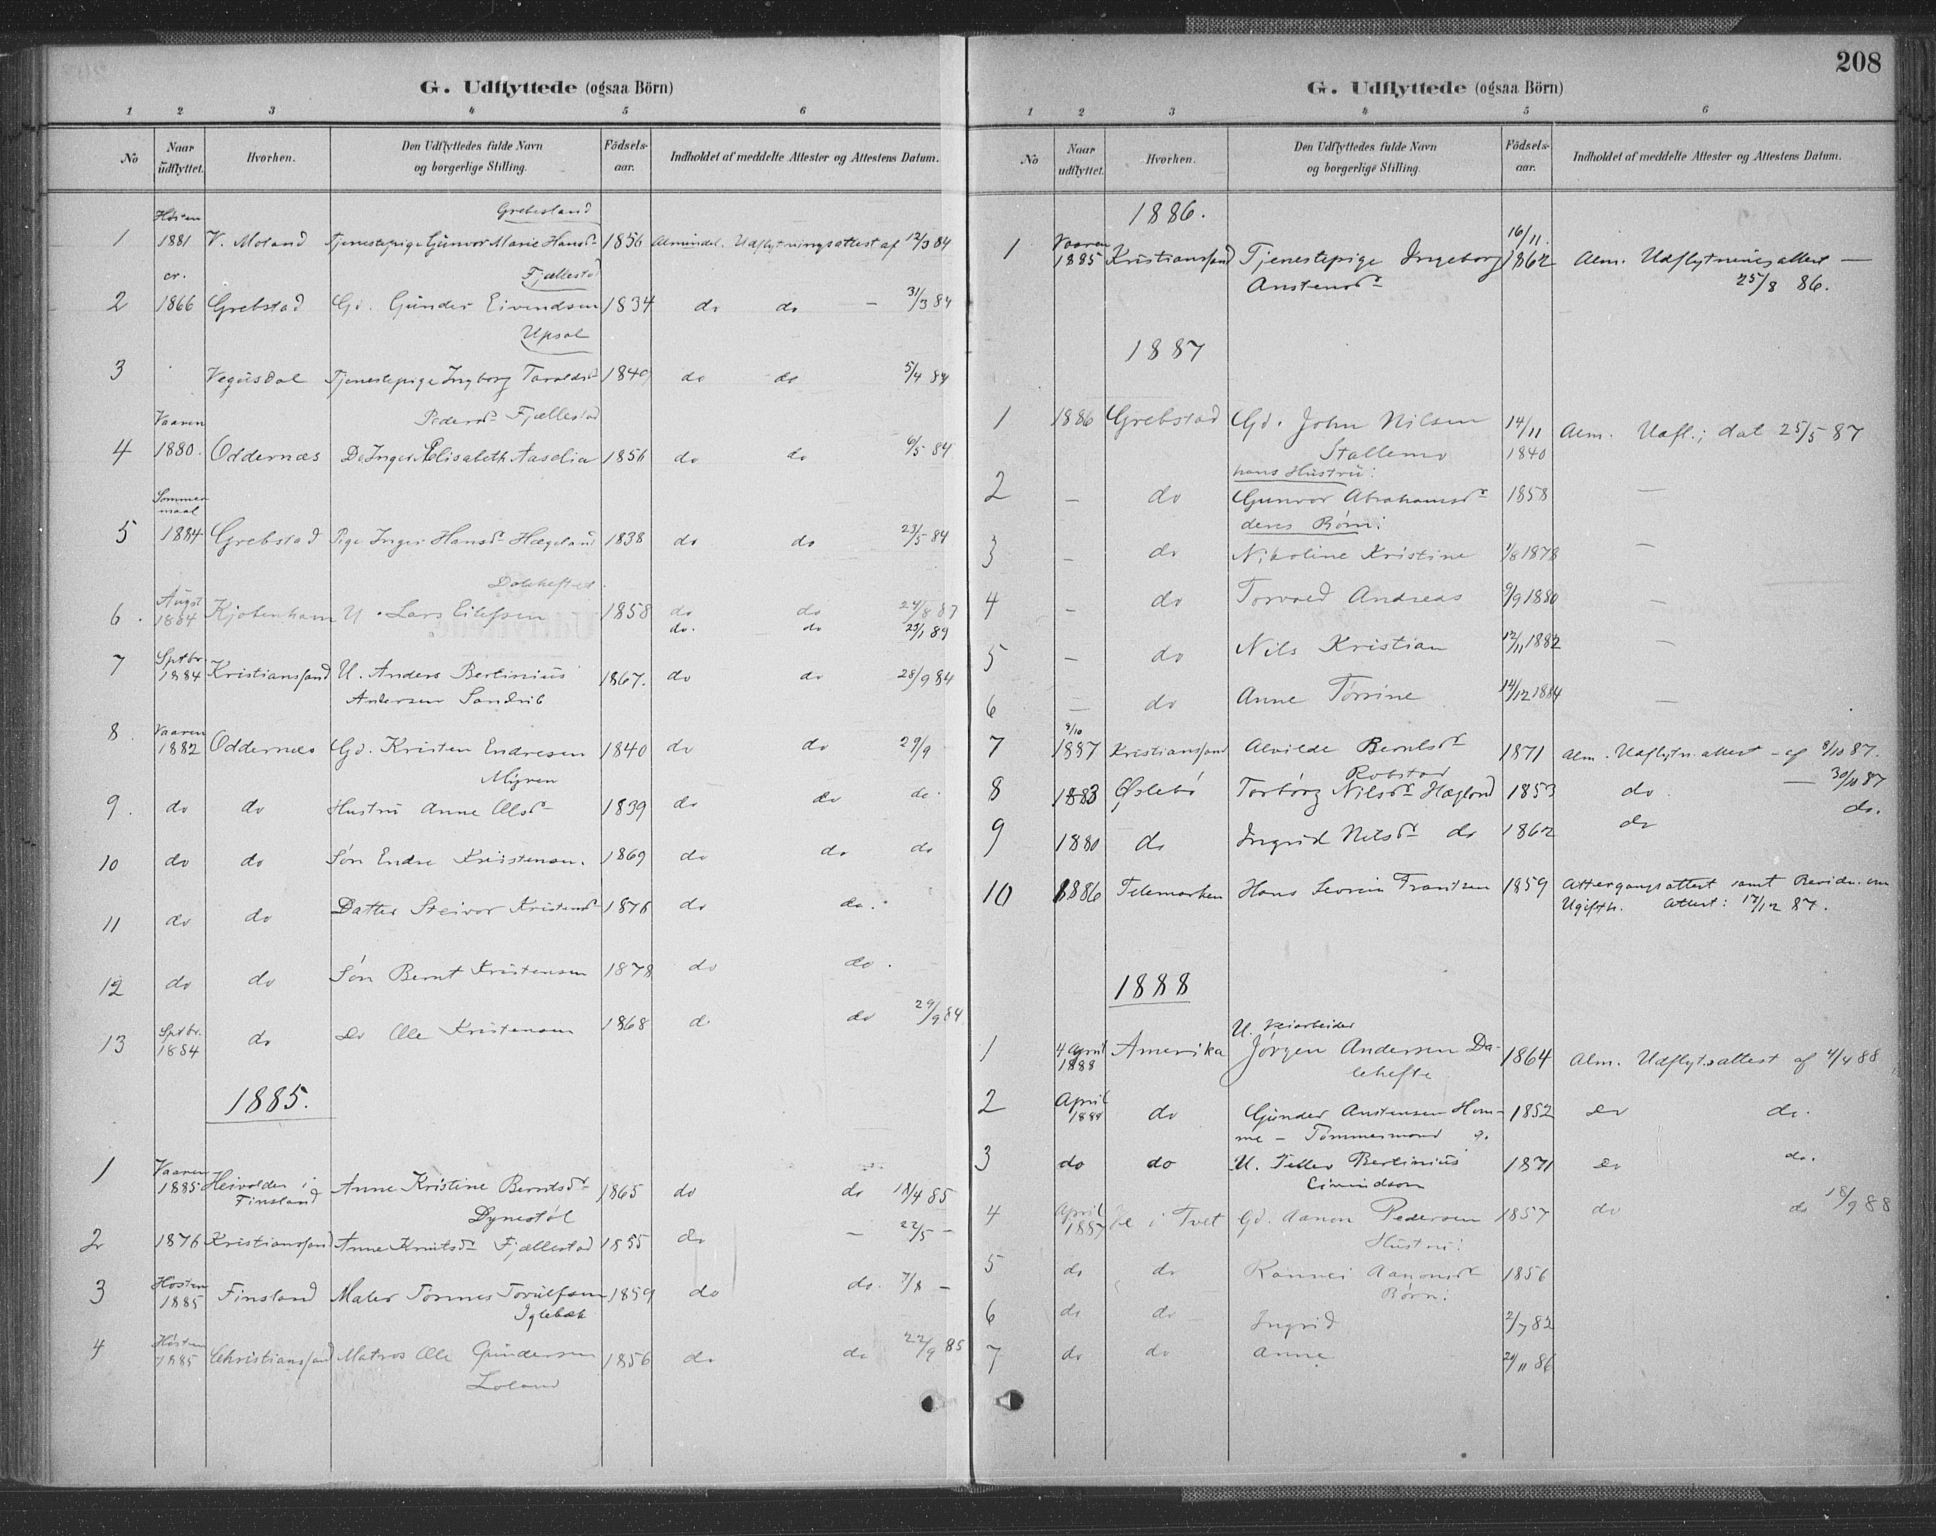 G. Udflyttede (ogsaa Börn)
1 2 3 4 5 6
No Naar udflyttet. Hvorhen. Den Udflyttedes fulde Navn og borgerlige Stilling. Födsels- aar. Indholdet af meddelte Attester og Attestens Datum.
Høsten Grebesland
1 1881 V. Moland Tjenestepige Gunvor Marie Hansd. 1856 Almindel. Udflytningsattest af 12/3 84
cr. Fjellestad
2 1866 Grebstad Gd. Gunder Eivendsen 1834 do do - 31/3 84
Upsal
3 Vegusdal Tjenestepige Ingborg Taraldsd. 1840 do do 5/4 84
Vaaren Pedersd. Fjellestad
4 1880. Oddernæs Do Inger Elisabeth Aaselia 1856 do do 6/5 84
Sommer
maal
5 1884 Grebstad Pige Inger Hansd. Hægeland 1838 do do 23/5 84
Augst Dalehefted.
6. 1884 Kjøbenhavn U. Lars Eilefsen 1858 do do 24/8 87
do. do 23/1 89
7 Sptbr. 1884 Kristianssand U. Anders Bertinius 1867. do do 28/9 84
Andersen Sandrib
8. Vaaren 1882 Oddernæs Gd. Kristen Endresen 1840 do do 29/9 -
Myren
9. do do Hustru Anne Olsd. 1839 do do do.
10 do do Søn Endre Kristensen. 1869 do do do
11 do do Datter Steivor Kristensd. 1876 do do.
12 do do Søn Bernt Kristensen 1878 do do.
13 Sptbr. 1884 do do Ole Kristensen 1868 do do 29/9 84
1885.
1 Vaaren 1885 Heivolden i Finsland Anne Kristine Berntsd. 1865 do do 18/4 85
Dynestøl
2 1876 Kristianssand Anne Knutsd. Fjellestad 1855 do - 22/5 -
3 Høsten 1885 Finsland Maler Tormes Torulfsen 1859 do do. 7/8 -
Iglebæk
4 Høsten 1885 Christianssand Matros Ole Gundersen 1856 do do 22/9 85
Loland
208
G. Udflyttede (ogsaa Börn)
1 2 3 4 5 6
No Naar udflyttet. Hvorhen. Den Udflyttedes fulde Navn og borgerlige Stilling. Födsels- aar. Indholdet af meddelte Attester og Attestens Datum.
1886.
1 Vaaren 1885 Kristianssand Tjenestepige Ingeborg 16/11. 1862 Alm. Udflytningsattest —
Austensd. 25/8 86.
1887
1 1886 Grebstad Gd. John Nilsen 14/11 Alm. Udfl.; dat 25/5 87
Stallemo 1840
hans Hustru:
2 - do Gunvor Abrahamsd. 1858 -
deres Børn:
3 - do Nikoline Kristine 1/8 1878 -
4 - do Torvald Andreas 9/9 1880 -
5 - do Nils Kristian 12/11 1882 -
6 - do Anne Tørrine 14/12 1884 -
7 8/10 1887 Kristianssand Alvilde Berntsd. 1871 Alm. Udflytn. attest - af 8/10 87.
Robstad
8 1883 Øslebø Torborg Nilsd. Hægland 1853 do. — 30/11 87
9 1880 do Ingrid Nilsd. do 1862 do do.
10 1886 Telemarken Hans Severin Frantzen 1859 Attergangsattest samt Bevidn. om
Ugifth. Attest: 17/12 87.
1888
U. Veiarbeider
1 4 April 1888 Amerika Jørgen Andersen Da- 1864 Alm. Udflyts.attest af 4/4 88
lehefte
2 April 1888 do Gunder Austensen Hom- 1852 do do.
me - Tømmermand g.
3 do do U. Tellev Bertinius 1871 do do.
Eivindson
4 April 1887 i Tvet Gd. Aanon Pedersen 1857 do do 18/9 88
Hustru:
5 do do Rannei Aanonsd. 1856
Børn:
6 do do Ingrid 2/7 82
7 do do Anne 20/11 86